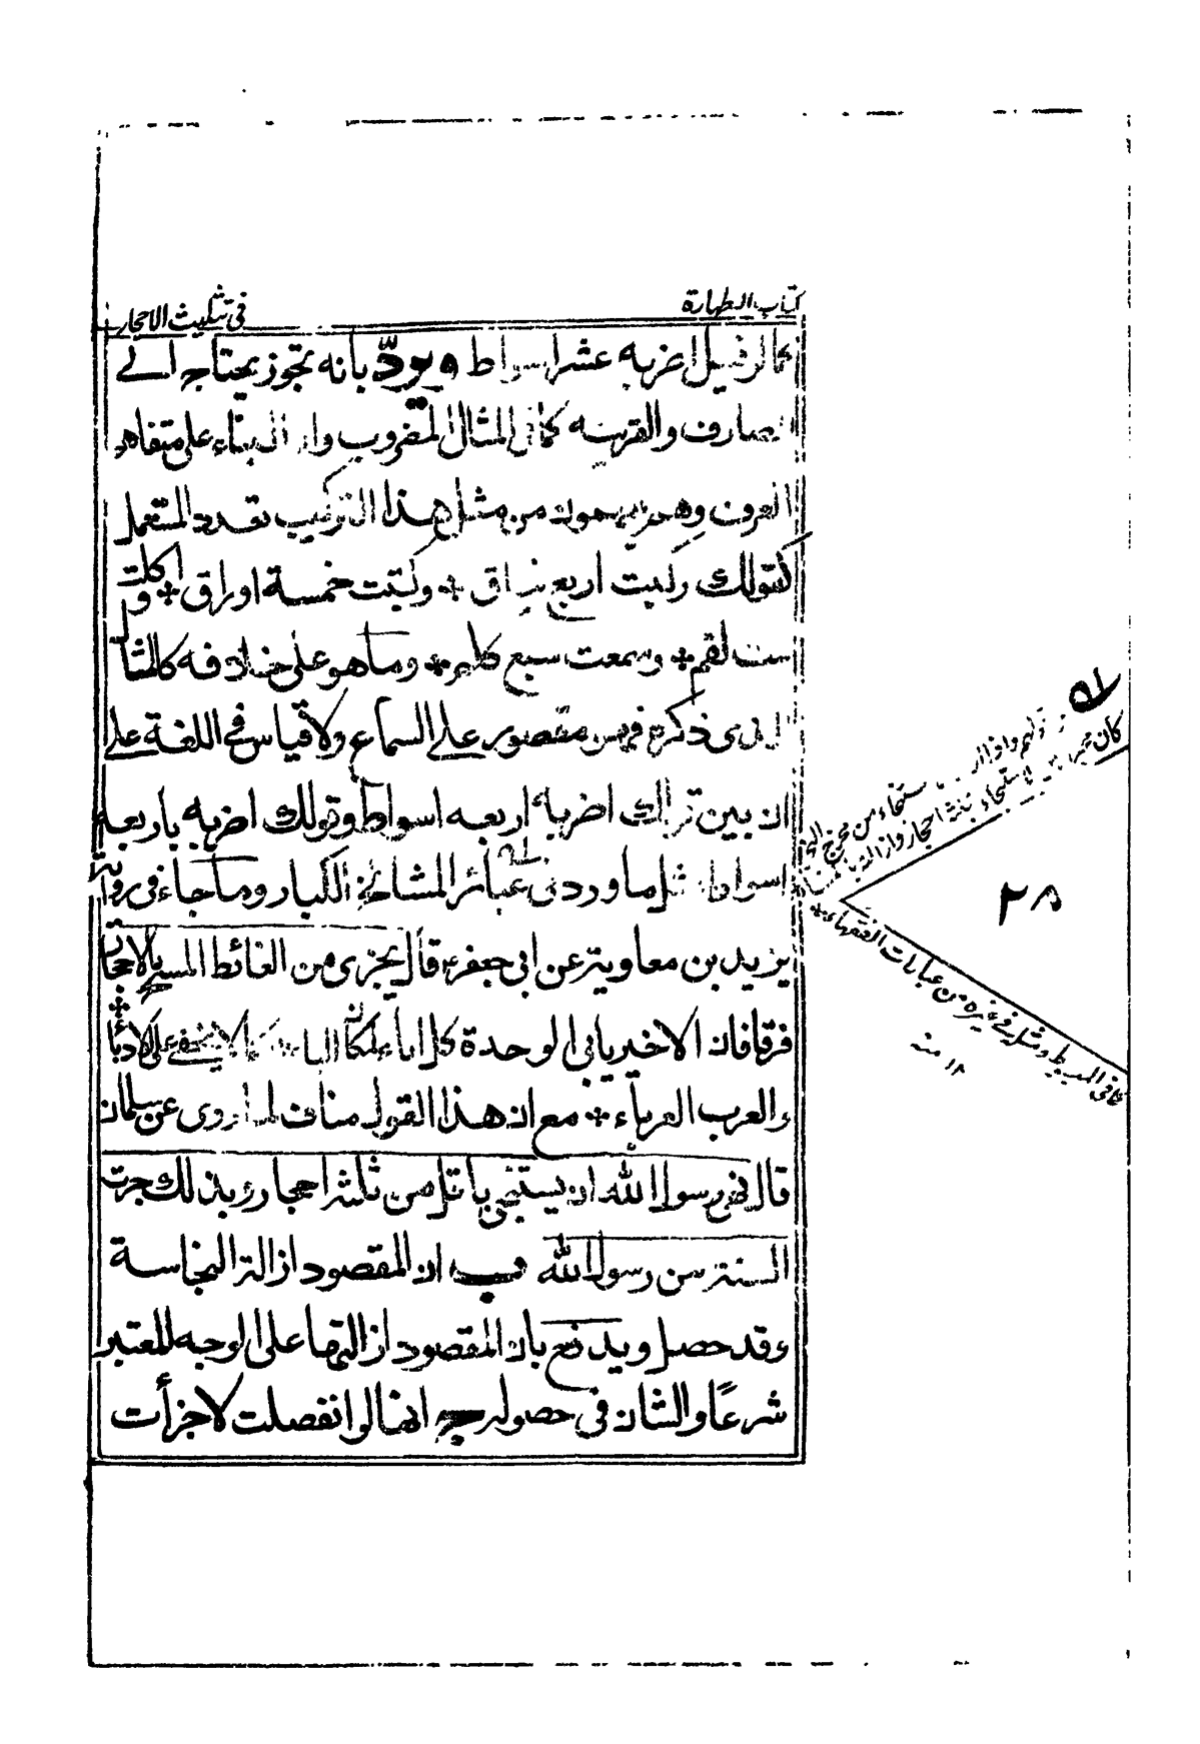 كتاب الطهارة
في تثليث الاحجار
كما لو قيل اضربه عشر اسواط ويردّ بانه تجوز يحتاج الے
الصارف والقرينه كما فى المثال المضروب وان البناء على متفاهم
العرف وهم يفهمون من مثل هذا التركيب تعدد المستعمل
كقولك ركبت اربع نياق وكتبت خمسة اوراق واكلت
ست لقم وسمعت سبع كلم وما هو على خلافه كالمثال
الذى ذكره فهو مقصور على السماع ولا قياس فى اللغة على
ان بين قولك اضربه اربعه اسواط وقولك اضربه باربعه
اسواط مثل ما ورد فى عبائر المشائخ الكبار وما جاء فى رواية
يزيد بن معاوية عن ابى جعفر قال يجزى من الغائط المسح بالاحجار
فرقا فان الاخير يابى الوحدة كل اباء لمكان الباء كما لا يخفى على الادباء
والعرب العرباء مع ان هذا القول مناف لما روى عن سلمان
قال نهى رسول الله ان يستنجى باقل من ثلثة احجار وبذلك جرت
السنة من رسول الله ب ان المقصود ازالة النجاسة
وقد حصل ويدفع بان المقصود ازالتها على الوجه المعتبر
شرعًا والشان فى حصوله ج انها لو انفصلت لاجزأت
الاستنجاء بثلثة احجار
كما فى البسيط ومثله فى غيره من عبارات الفقهاء
١٢ منه
٢٨